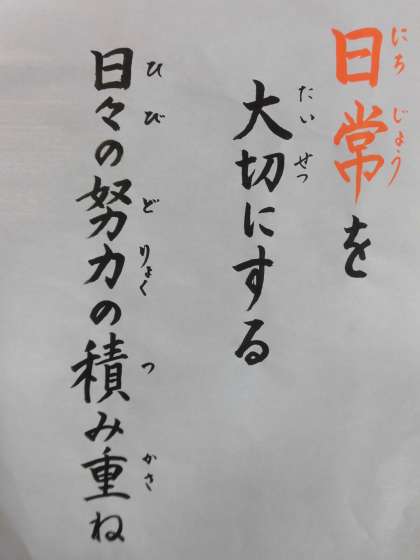 日常を
にちじょう
大切にする
たいせつ
日々の努力の積み重ね
ひびどりょくつかさ